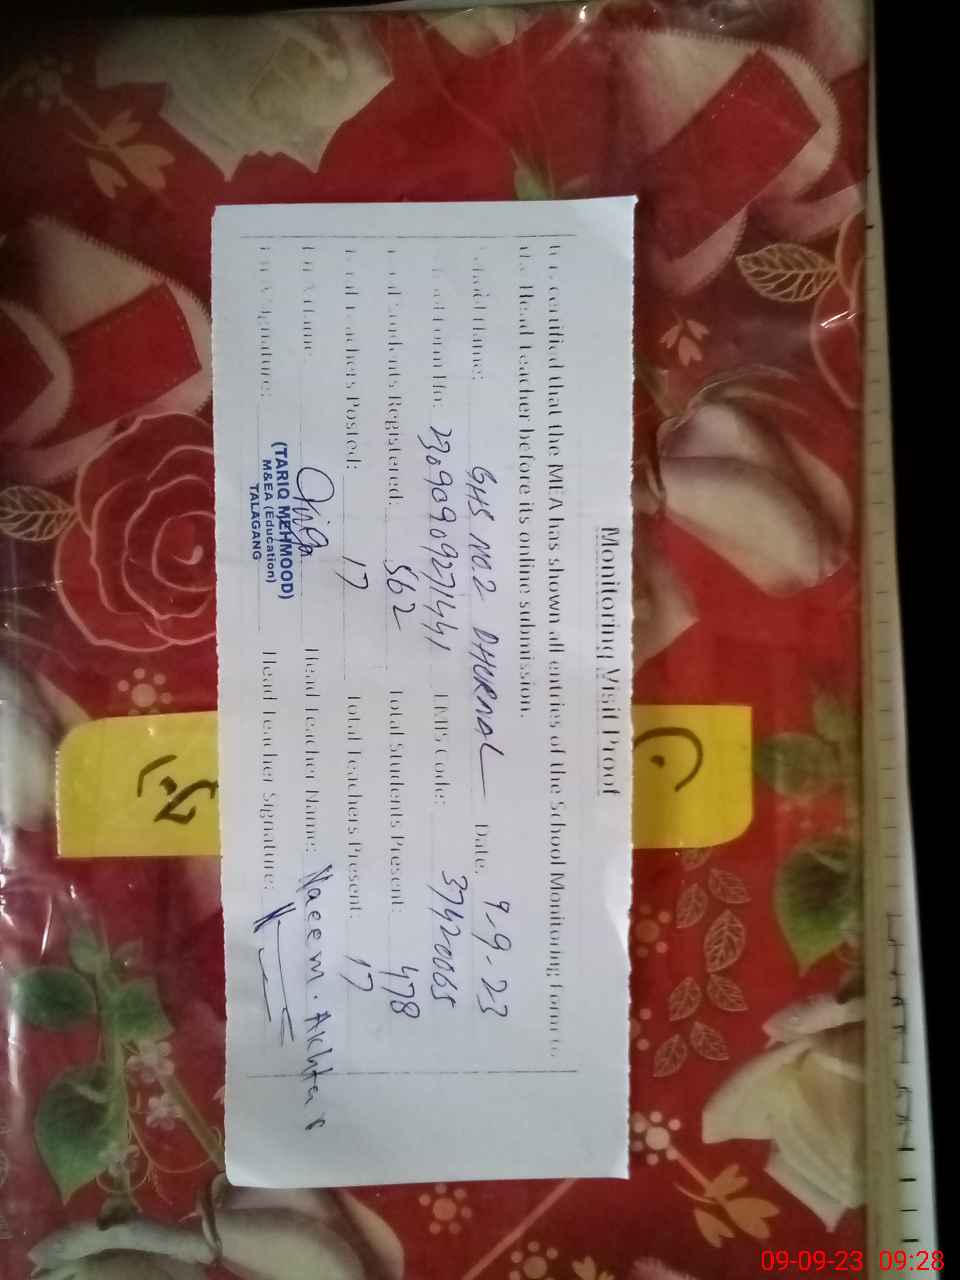 Monitoring Visit Proof
It is certified that the MEA has shown all entries of the School Monitoring Form to
the Head Teacher before its online submission.
School Name: GHS NO.2 DHURNAL Date: 9-9-23
Form No: EMIS Code: 37420065
Total Students Registered: 562 Total Students Present: 478
Total Teachers Posted: 17 Total Teachers Present: 17
Name: Head Teacher Name: Naeem. Akhtar
Signature: Head Teacher Signature:
(TARIQ MEHMOOD)
M&EA (Education)
TALAGANG
09-09-23 09:28